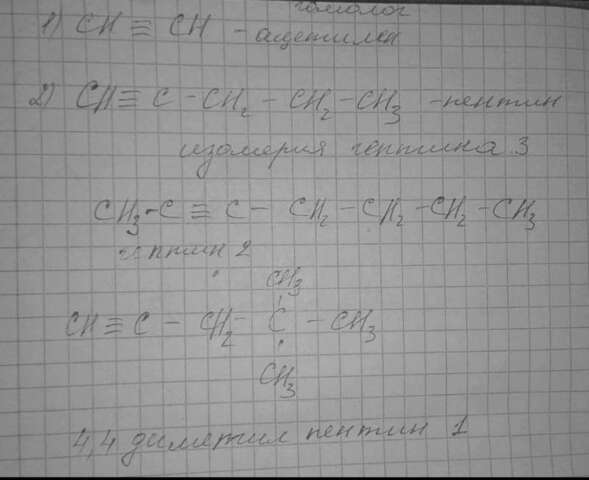 гомолог
1) CH ≡ CH - ацетилен
2) CH ≡ C - CH₂ - CH₂ - CH₃ - пентин
изомерия гептина 3
CH₃ - C ≡ C - CH₂ - CH₂ - CH₂ - CH₃
гептин 2
CH₃
CH ≡ C - CH₂ - C - CH₃
CH₃
4,4 диметил пентин 1